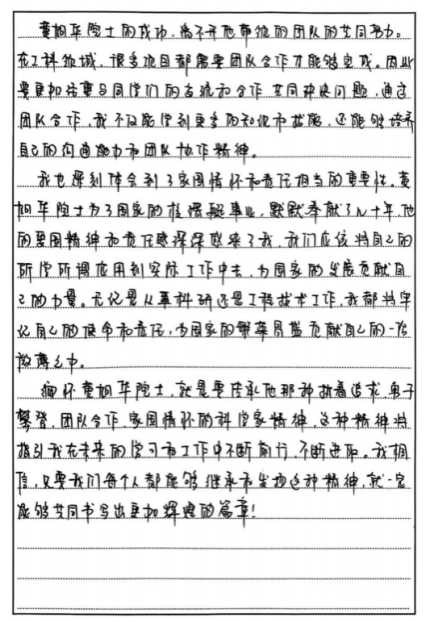 黄旭华院士的成功，离不开他带领的团队的共同努力。
在工科领域，很多项目都需要团队合作才能够完成。因此
要更加注重与同学们的交流和合作，共同解决问题，通过
团队合作，我不仅能学到更多的知识和技能，还能够培养
自己的沟通能力和团队协作精神。
我也深刻体会到了家国情怀和责任担当的重要性。黄
旭华院士为了国家的核潜艇事业，默默奉献了几十年，他
的爱国精神和责任感深深感染了我。我们应该将自己的
所学所悟应用到实际工作中去，为国家的发展贡献自
己的力量。无论是从事科研还是工程技术工作，我都将牢
记自己的使命和责任，为国家的繁荣昌盛贡献自己的一份
微薄之力。
缅怀黄旭华院士，就是要传承他那种执着追求、勇于
攀登、团队合作、家国情怀的科学家精神，这种精神将
指引我在未来的学习和工作中不断前行，不断进取。我相
信，只要我们每个人都能够继承和发扬这种精神，就一定
能够共同书写出更加辉煌的篇章！